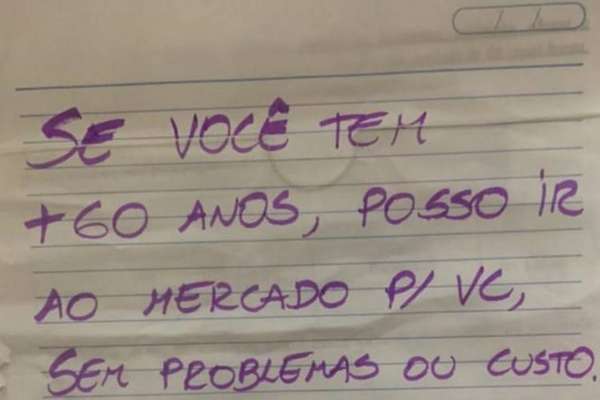 SE VOCÊ TEM
+60 ANOS, POSSO IR
AO MERCADO P/ VC,
SEM PROBLEMAS OU CUSTO.